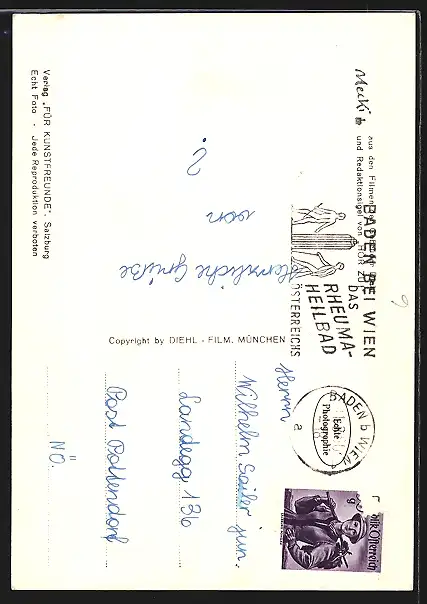 Mecki
aus den Filmen der
und Redaktionsigel von HÖR ZU
Herzliche Grüße
von
?
Verlag „FÜR KUNSTFREUNDE", Salzburg
Echt Foto - Jede Reproduktion verboten
Copyright by DIEHL - FILM, MÜNCHEN
BADEN BEI WIEN
DAS
RHEUMA-
HEILBAD
ÖSTERREICHS
BADEN b WIEN
a
Echte
Photographie
Herrn
Wilhelm Sailer jun.
Landegg 136
Post Pottendorf
NÖ.
9